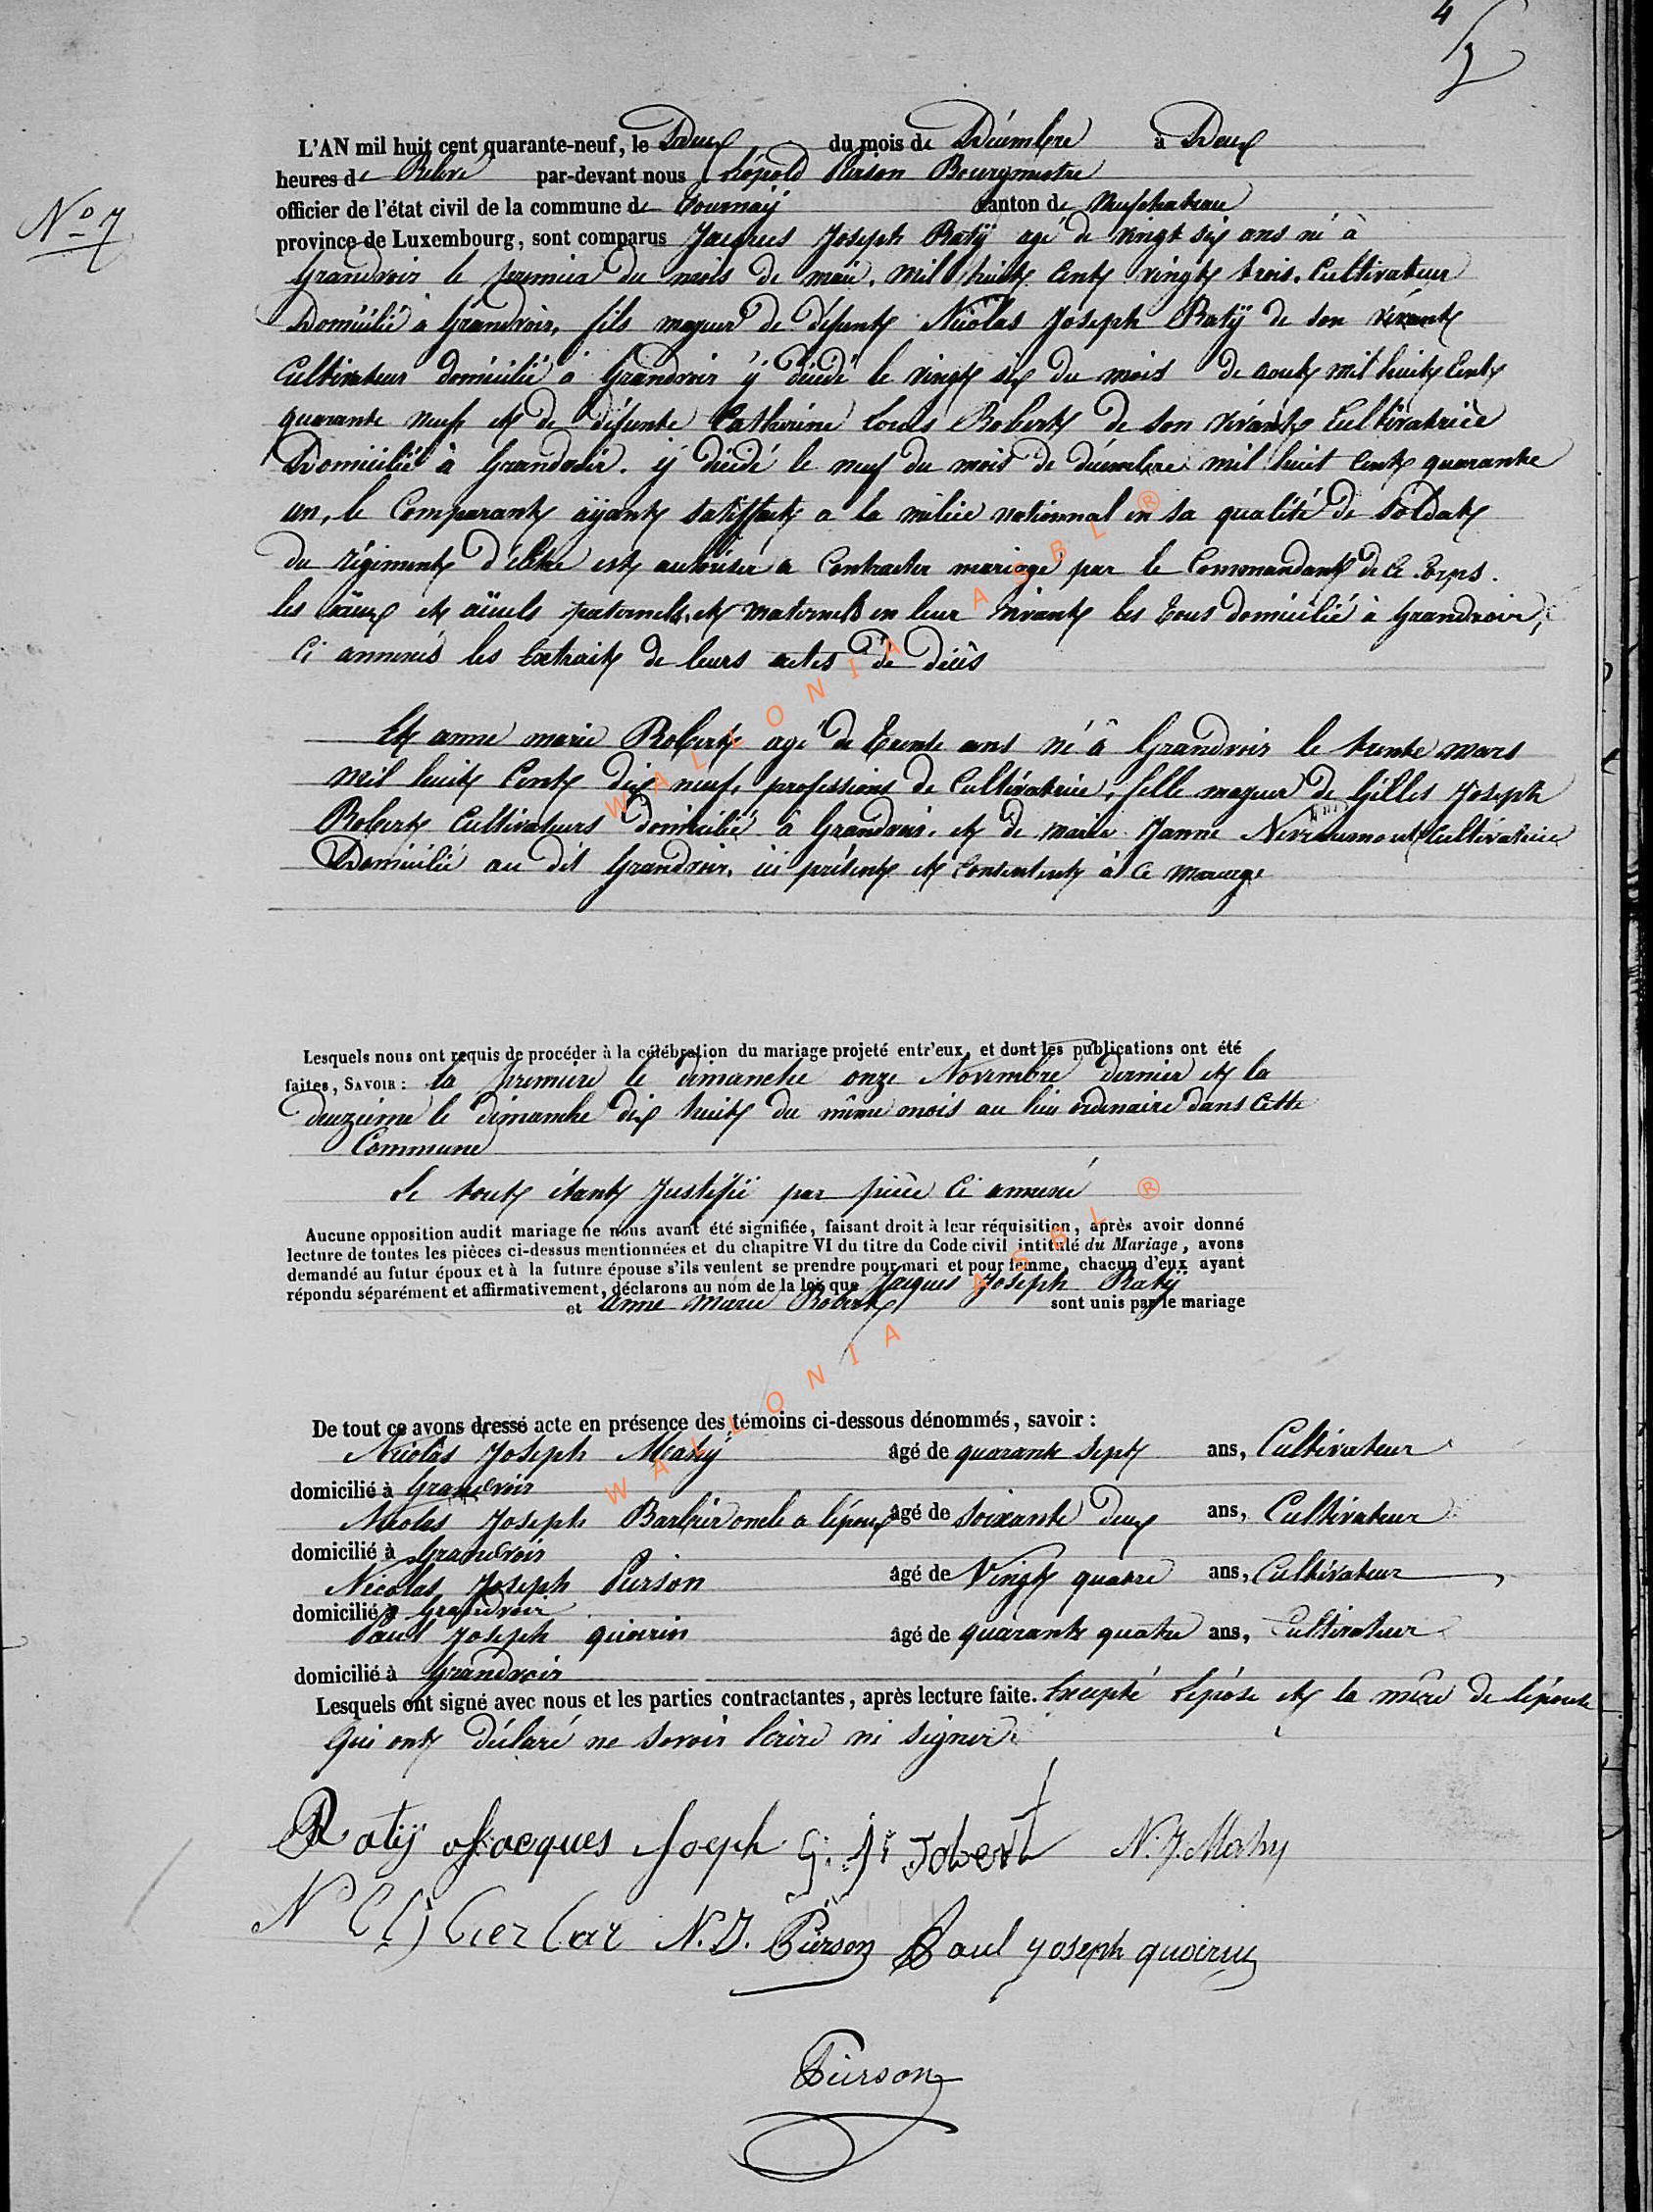 4
N° 7
L'AN mil huit cent quarante-neuf, le Deux du mois de Décembre à Deux
heures de Relevé par-devant nous Léopold Pierson Bourgmestre
officier de l'état civil de la commune de Tournaÿ canton de Neufchateau
province de Luxembourg, sont comparus Jacques Joseph Ratÿ agé de vingt six ans né à
Grandvoir le premier du mois de mai. mil huit Cent vingt trois. Cultivateur
Domicilié à Grandvoir, fils mageur de défunt Nicolas Joseph Ratÿ de son vivant
Cultivateur domicilié à Grandvoir ÿ décédé le vingt six du mois de aout mil huit Cent
quarante neuf et de défunte Catherine Louis Robert de son vivant Cultivatrice
Domicilié à Grandvoir. ÿ décédé le neuf du mois de décembre mil huit Cent quarante
un, le Comparant aÿant satisffait a la milice nationnal en sa qualité de Soldat
du régiment d'élitte est autoriser a Contracter mariage par le Commandant de Ce Corps.
les aïeux et aïeuls paternels, et maternels en leur vivant les tous domicilié à Grandvoir,
Ci annexés les Extrait de leurs actes de décès
Et anne marie Robert agé de trente ans né à Grandvoir le trente mars
mil huit Cent dix neuf, professions de Cultivatrice, fille mageur de Gilles Joseph
Robert Cultivateurs domicilié à Grandvoir. et de marie Janne Nevraumont Cultivatrice
Domicilié au dit Grandvoir, ici présent et Consentent à Ce mariage
Lesquels nous ont requis de procéder à la célébration du mariage projeté entr'eux, et dont les publications ont été
faites, SAVOIR : la premiere le dimanche onze Novembre dernier et la
deuzieme le dimanche dix huit du même mois au lieu ordinaire dans Cette
Commune
Le tout étant Justifié par pièce Ci annexé
Aucune opposition audit mariage ne nous ayant été signifiée, faisant droit à leur réquisition, après avoir donné
lecture de toutes les pièces ci-dessus mentionnées et du chapitre VI du titre du Code civil intitulé du Mariage, avons
demandé au futur époux et à la future épouse s'ils veulent se prendre pour mari et pour femme, chacun d'eux ayant
répondu séparément et affirmativement, déclarons au nom de la loi que Jacques Joseph Ratÿ
et Anne Marie Robert sont unis par le mariage
De tout ce avons dressé acte en présence des témoins ci-dessous dénommés, savoir :
Nicolas Joseph Mahÿ âgé de quarante Sept ans, Cultivateur
domicilié à Grandvoir
Nicolas Joseph oncle a l'époux âgé de soixante deux ans, Cultivateur
domicilié à Grandvoir
Nicolas Joseph Pierson âgé de Vingt quatre ans, Cultivateur
domicilié à Grandvoir
Paul Joseph quoirin âgé de quarante quatre ans, Cultivateur
domicilié à Grandvoir
Lesquels ont signé avec nous et les parties contractantes, après lecture faite. Excepté l'épose et la mère de l'épouse
qui ont déclaré ne savoir Ecrire ni signer.
Ratÿ Jacques Joseph G. J. Robert N. J. Mahy
N. J. Pierson Paul Joseph quoirin
Pierson
WALLONIA ASBL ®
WALLONIA ASBL ®